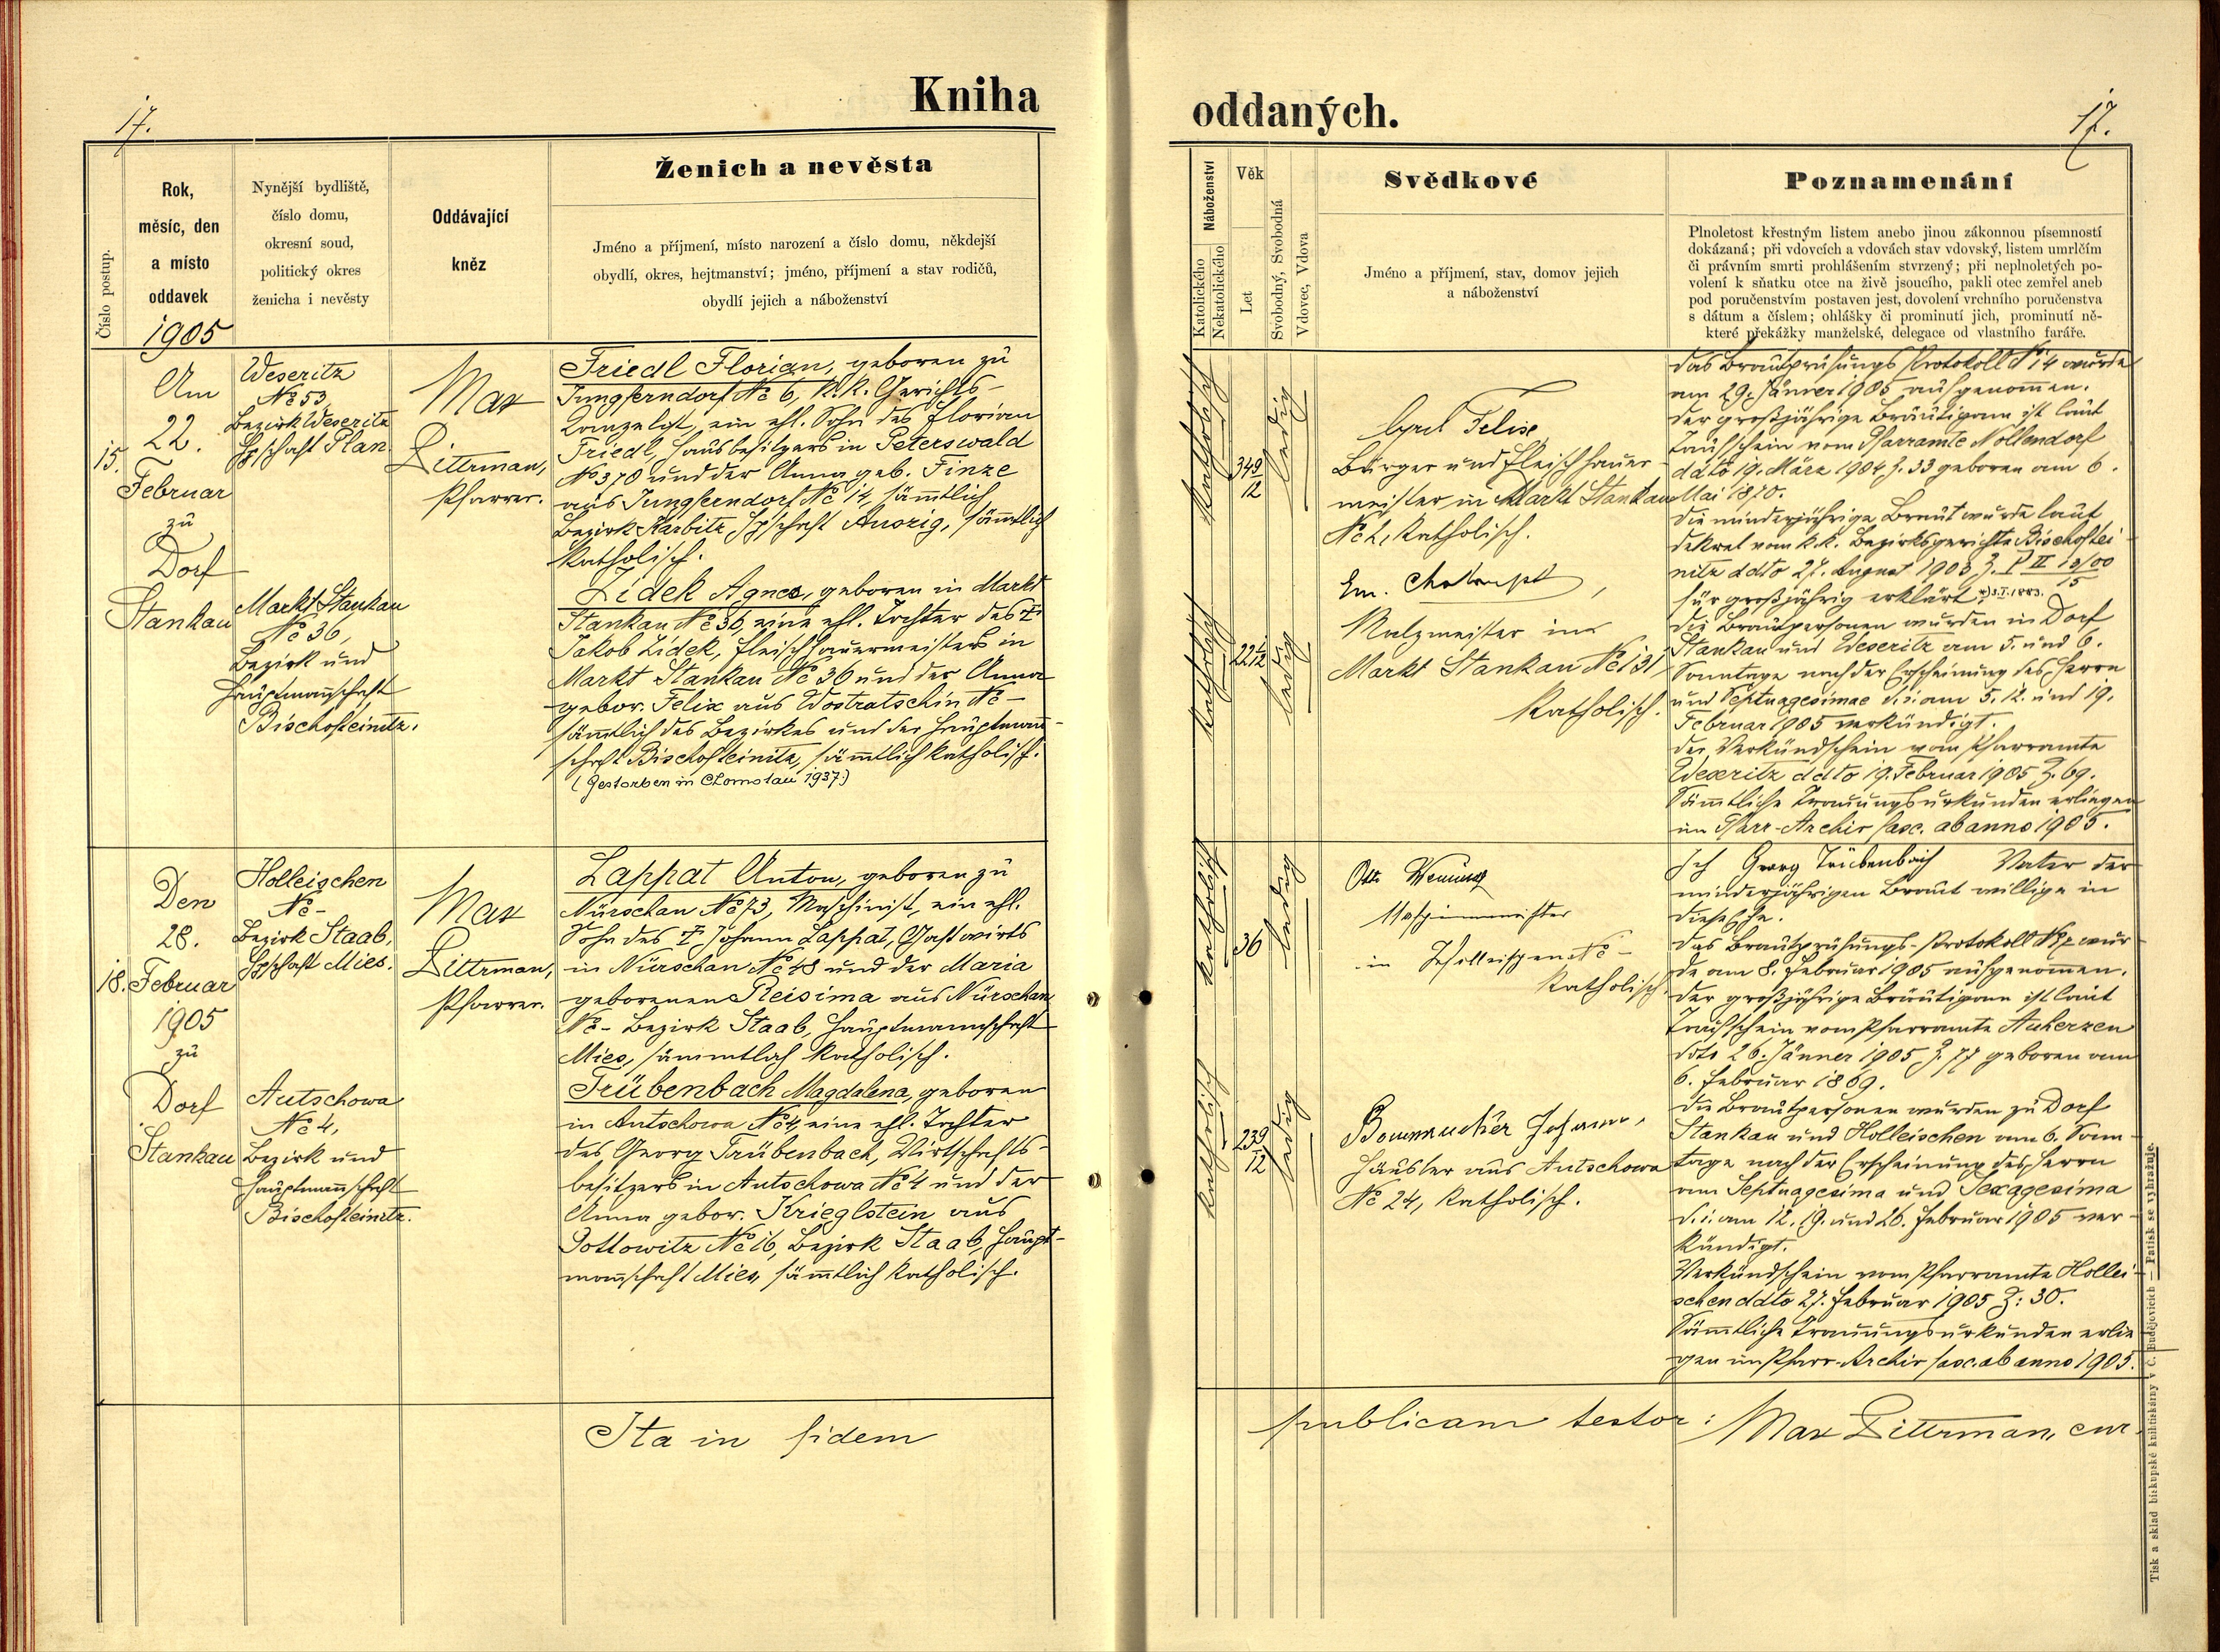 17.
Kniha
oddaných.
17.
Číslo postup.
Rok,
měsíc, den
a místo
oddavek
1905
Nynější bydliště,
číslo domu,
okresní soud,
politický okres
ženicha i nevěsty
Oddávající
kněz
Ženich a nevěsta
Jméno a příjmení, místo narození a číslo domu, někdejší
obydlí, okres, hejtmanství; jméno, příjmení a stav rodičů,
obydlí jejich a náboženství
Náboženství
Katolického
Nekatolického
Věk
Let
Svobodný, Svobodná
Vdovec, Vdova
Svědkové
Jméno a příjmení, stav, domov jejich
a náboženství
Poznamenání
Plnoletost křestným listem anebo jinou zákonnou písemností
dokázaná; při vdovcích a vdovách stav vdovský, listem umrlčím
či právním smrti prohlášením stvrzený; při neplnoletých po-
volení k sňatku otce na živě jsoucího, pakli otec zemřel aneb
pod poručenstvím postaven jest, dovolení vrchního poručenstva
s dátum a číslem; ohlášky či prominutí jich, prominutí ně-
které překážky manželské, delegace od vlastního faráře.
15.
Am
22.
Februar
zu
Dorf
Stankau
Weseritz
No 53,
Bezirk Weseritz
Hptschaft Plan
Markt Stankau
No 36,
Bezirk und
Hauptmannschaft
Bischofteinitz.
Max
Dittrman,
Pfarrer.
Friedl Florian, geboren zu
Jungferndorf No 6, K.K. Gerichts-
Kanzelist, ein ehl. Sohn des Florian
Friedl, Hausbesitzers in Peterswald
No 370 und der Anna geb. Finze
aus Jungferndorf No 14, sämtlich
Bezirk Karbitz, Hptschaft Aussig, sämtlich
katholisch.
Zidek Agnes, geboren in Markt
Stankau No 36, eine ehl. Tochter des †
Jakob Zidek, Fleischhauermeisters in
Markt Stankau No 36 und der Anna
gebor. Felix aus Wostratschin No -
sämtlich des Bezirkes und der Hauptmann-
schaft Bischofteinitz, sämtlich katholisch.
(Gestorben in 1937.)
katholisch
34 9/12
ledig
katholisch
22 1/12
ledig
Cyril Felix
Bürger und Fleischhauer-
meister in Markt Stankau
No 2, katholisch.
Em.
Malzmeister in
Markt Stankau No 131
katholisch.
Das Brautprüfungs Protokoll No 14 wurde
am 29. Jänner 1905 aufgenommen.
Der großjährige Bräutigam ist laut
Taufschein vom Pfarramte Nollendorf
ddto 19. März 1904 Z. 33 geboren am 6.
Mai 1870.
Die minderjährige Braut wurde laut
Dekret vom k.k. Bezirksgerichte Bischoftei-
nitz ddto 27. August 1903 Z. P II 10/00
15
für großjährig erklärt. *) 3.I.1883.
Die Brautpersonen wurden in Dorf
Stankau und Weseritz am 5. und 6.
Sonntage nach der Erscheinung des Herrn
und Septuagesimae d.i. am 5. 12. und 19.
Februar 1905 verkündigt.
Der Verkündschein vom Pfarramte
Weseritz ddto 19. Februar 1905 Z. 69.
Sämtliche Trauungsurkunden erliegen
im Pfarr-Archiv fasc. ab anno 1905.
18.
Den
28.
Februar
1905
zu
Dorf
Stankau
Holleischen
No -
Bezirk Staab,
Hptschaft Mies.
Autschowa
No 4,
Bezirk und
Hauptmannschaft
Bischofteinitz.
Max
Dittrman,
Pfarrer.
Lappat Anton, geboren zu
Nürschan No 73, Maschinist, ein ehl.
Sohn des † Johann Lappat, Gastwirts
in Nürschan No 48 und der Maria
geborenen Reisima aus Nürschan
No - Bezirk Staab, Hauptmannschaft
Mies, sämmtlich katholisch.
Trübenbach Magdalena, geboren
in Autschowa No 4, eine ehl. Tochter
des Georg Trübenbach, Wirtschafts-
besitzers in Autschowa No 4 und der
Anna gebor. Krieglstein aus
Dottowitz No 16, Bezirk Staab, Haupt-
mannschaft Mies, sämtlich katholisch.
katholisch
36
ledig
katholisch
23 9/12
ledig
Otto
Maschinmeister
in Holleischen No -
katholisch
Johann,
Häusler aus Autschowa
No 24, katholisch.
Ich Georg Trübenbach Vater der
minderjährigen Braut willige in
diese Ehe.
Das Brautprüfungs-Protokoll No wur-
de am 8. Februar 1905 aufgenommen.
Der großjährige Bräutigam ist laut
Taufschein vom Pfarramte Auherzen
ddto 26. Jänner 1905 Z. 77 geboren am
6. Februar 1869.
Die Brautpersonen wurden zu Dorf
Stankau und Holleischen am 6. Sonn-
tage nach der Erscheinung des Herrn
am Septuagesima und Sexagesima
d.i. am 12. 19. und 26. Februar 1905 ver-
kündigt.
Verkündschein vom Pfarramte Hollei-
schen ddto 27. Februar 1905 Z: 30.
Sämtliche Trauungsurkunden erlie-
gen im Pfarr-Archiv fasc. ab anno 1905.
Ita in fidem
publicam testor: Max Dittrman, cur.
Tisk a sklad biskupské knihtiskárny v Č. Budějovicích — Patisk se vyhražuje.